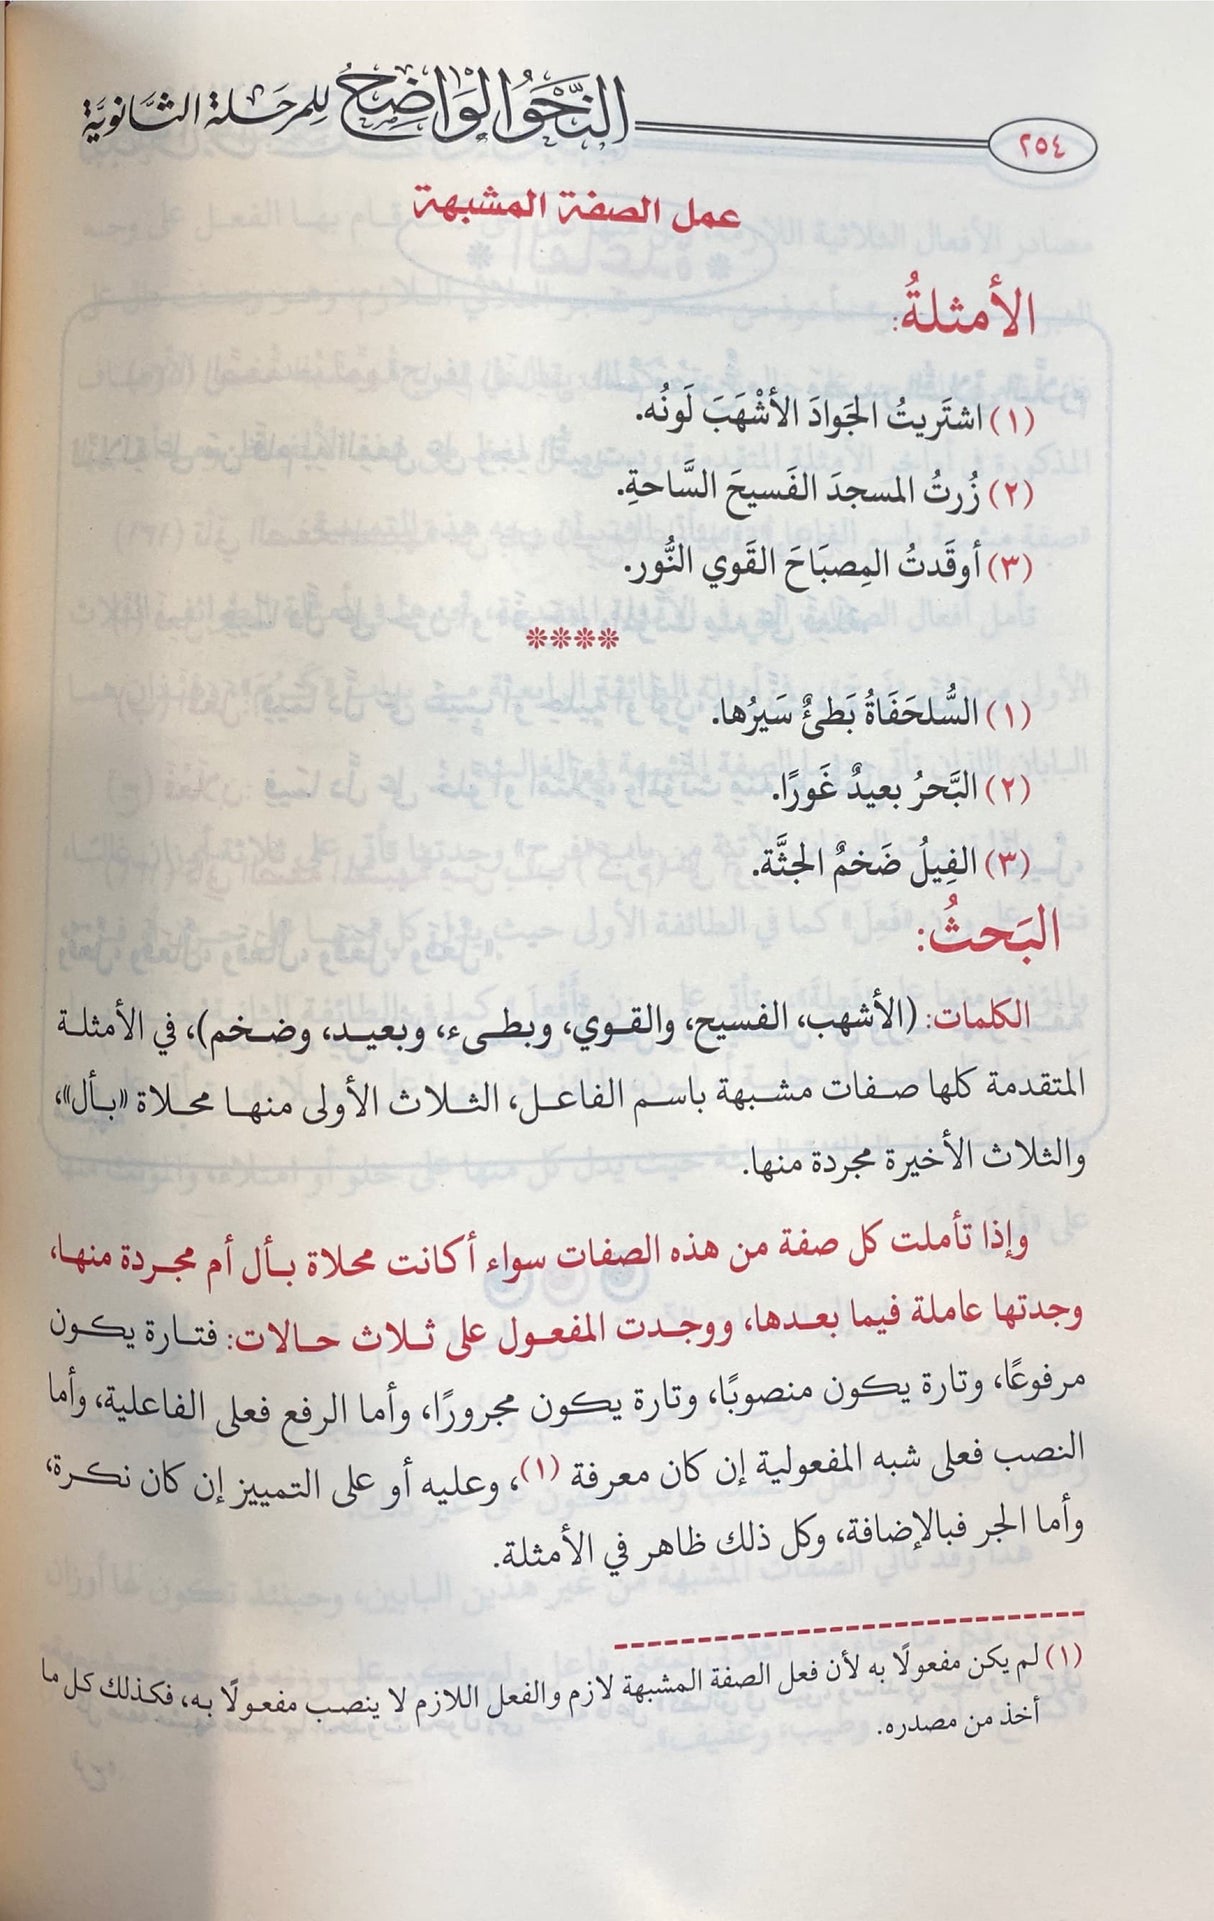 ٢٥٤
النَّحْوُ الْوَاضِحُ لِلْمَرْحَلَةِ الثَّانَوِيَّةِ
عمل الصفة المشبهة
الأمثلةُ:
(١) اشتَريتُ الجَوادَ الأشْهَبَ لَونُه.
(٢) زُرتُ المسجدَ الفَسيحَ السَّاحةِ.
(٣) أوقَدتُ المِصبَاحَ القَوي النُّور.
****
(١) السُّلحَفَاةُ بَطئٌ سَيرُها.
(٢) البَّحرُ بعيدٌ غَورًا.
(٣) الفِيلُ ضَخمٌ الجثَّة.
البَحثُ:
الكلمات: (الأشهب، الفسيح، والقوي، وبطىء، وبعيد، وضخم)، في الأمثلة
المتقدمة كلها صفات مشبهة باسم الفاعل، الثلاث الأولى منها محلاة «بأل»،
والثلاث الأخيرة مجردة منها.
وإذا تأملت كل صفة من هذه الصفات سواء أكانت محلاة بأل أم مجردة منها،
وجدتها عاملة فيما بعدها، ووجدت المفعول على ثلاث حالات: فتارة يكون
مرفوعًا، وتارة يكون منصوبًا، وتارة يكون مجرورًا، وأما الرفع فعلى الفاعلية، وأما
النصب فعلى شبه المفعولية إن كان معرفة (١)، وعليه أو على التمييز إن كان نكرة،
وأما الجر فبالإضافة، وكل ذلك ظاهر في الأمثلة.
(١) لم يكن مفعولًا به لأن فعل الصفة المشبهة لازم والفعل اللازم لا ينصب مفعولًا به، فكذلك كل ما
أخذ من مصدره.